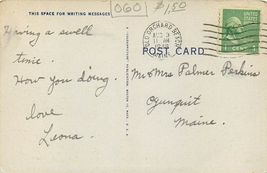 THIS SPACE FOR WRITING MESSAGES
060 $1.50
OLD ORCHARD BEACH
AUG 3
11 AM
MAINE
POST CARD
1 CENT 1
Having a swell
time.
How you doing.
love
Leona.
Mr & Mrs Palmer Perkins
Ogunquit
Maine.